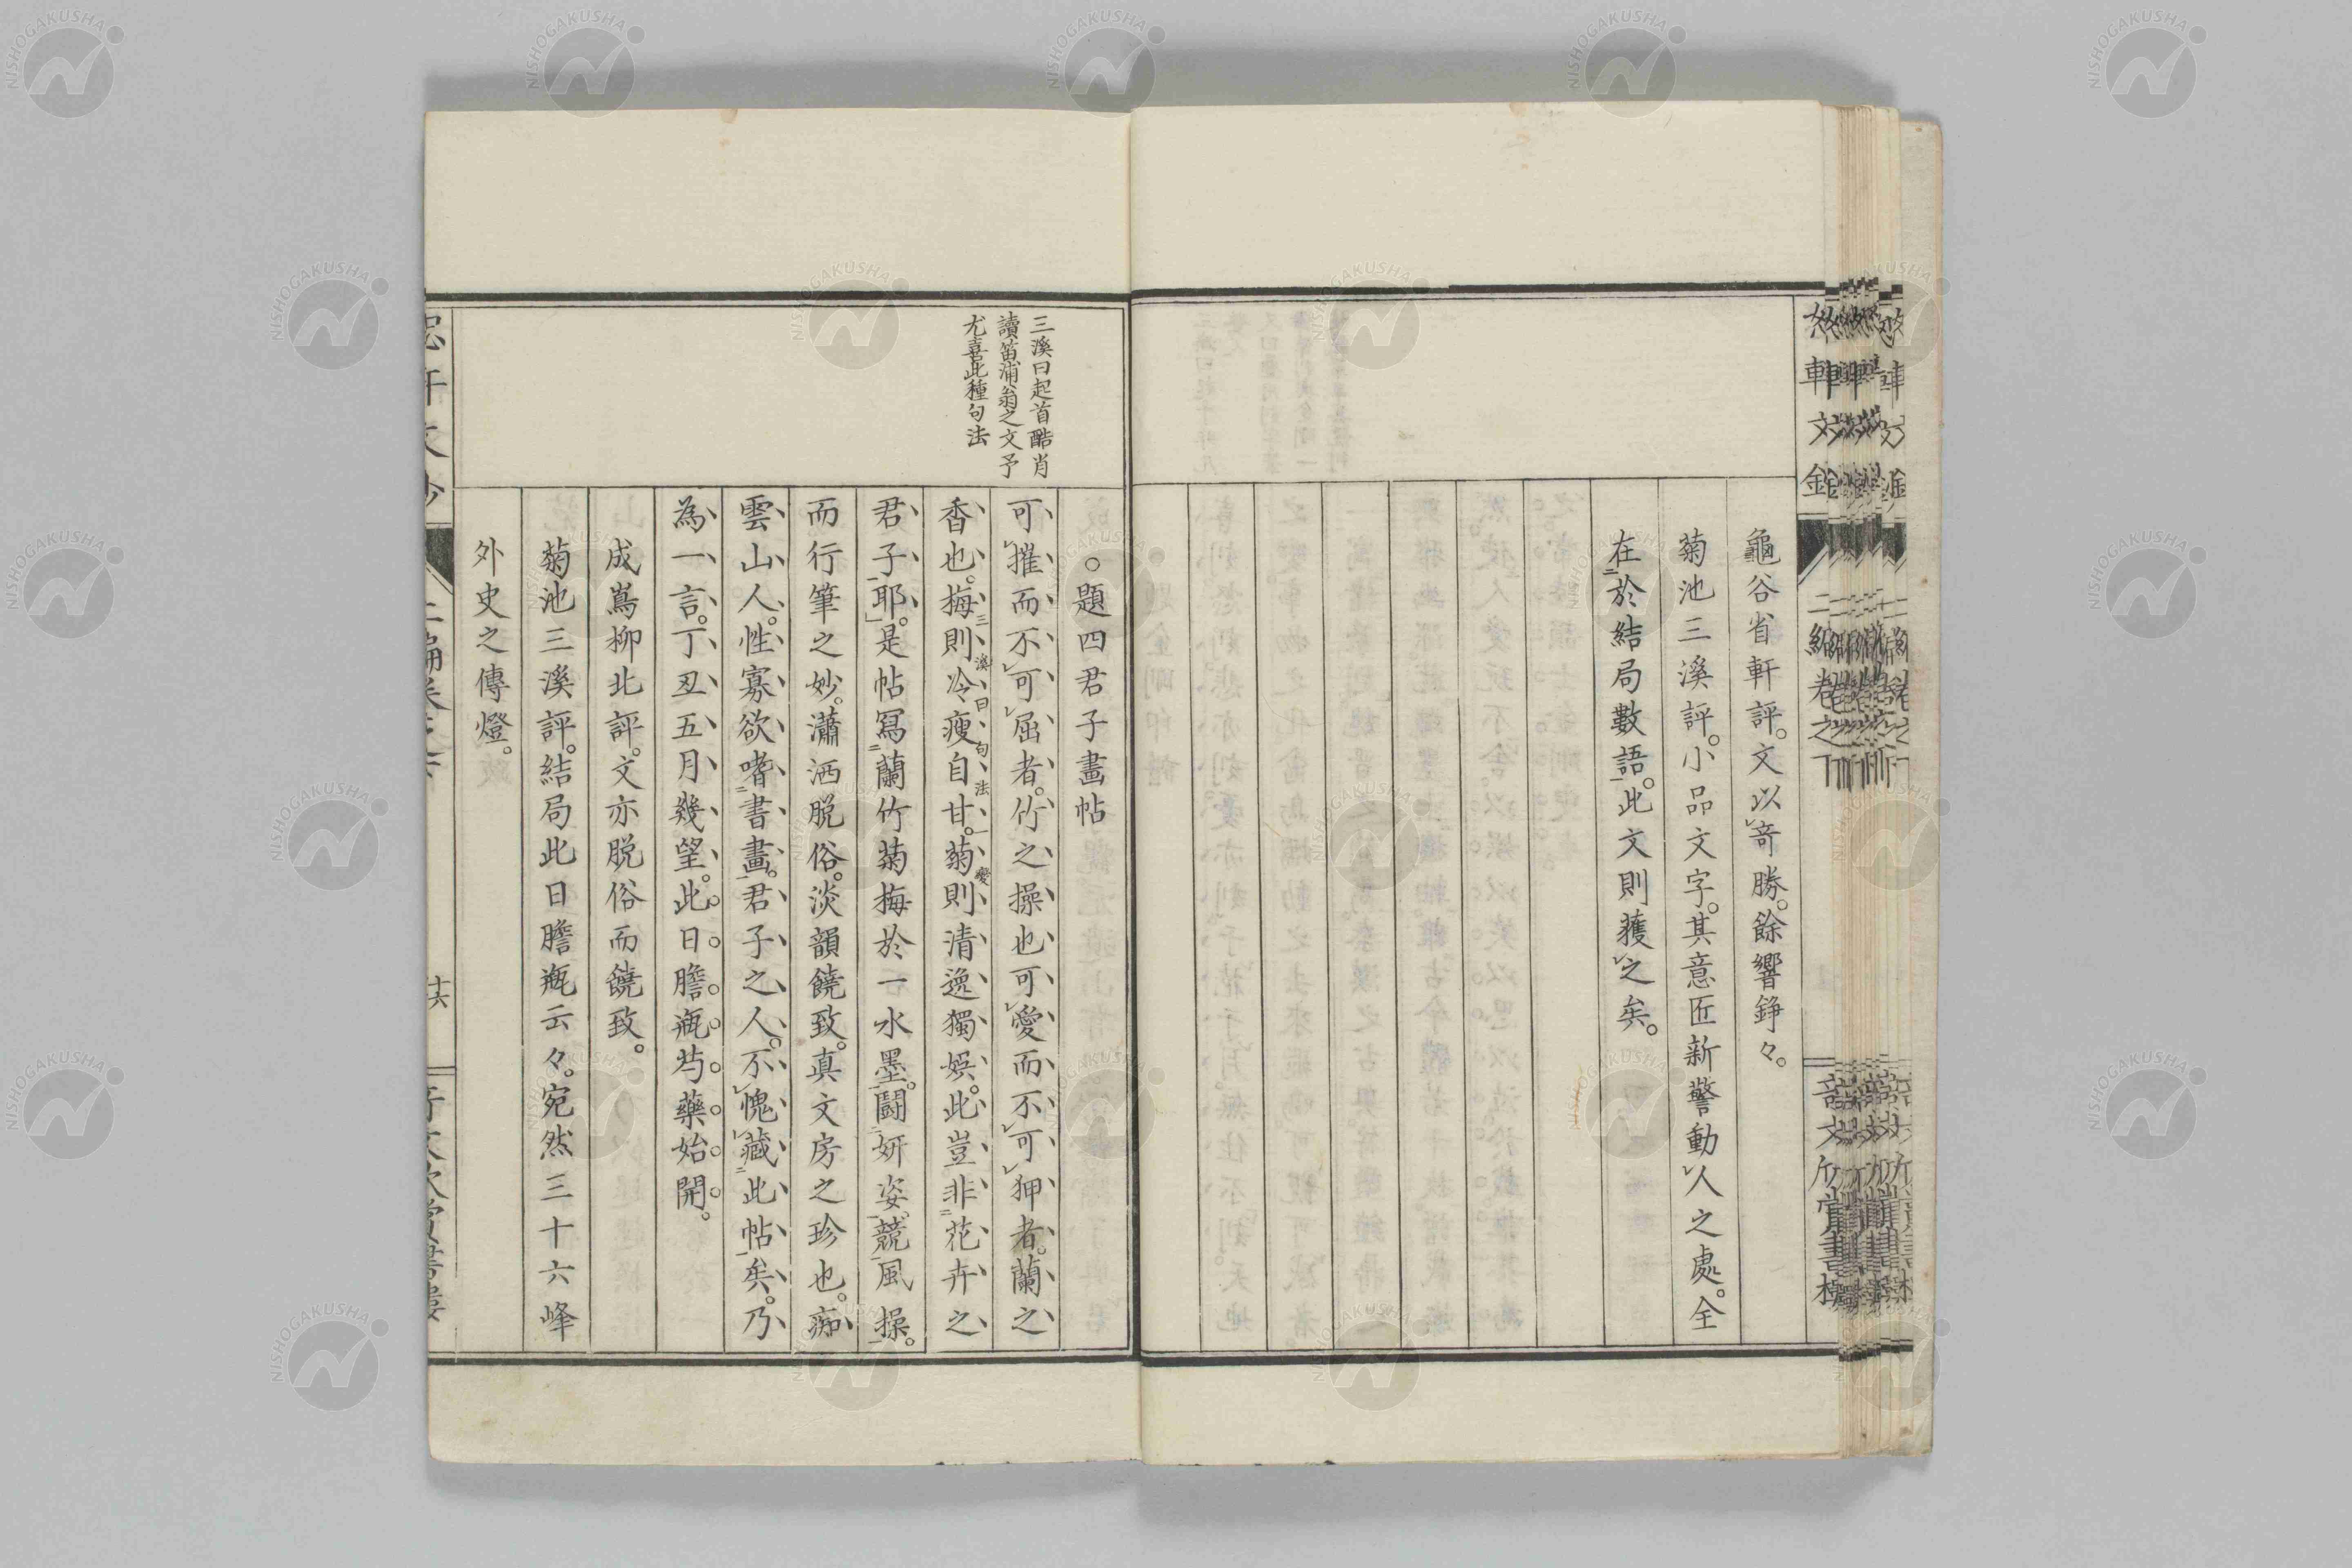 龜谷省軒評。文以奇勝。餘響錚々。
菊池三溪評。小品文字。其意匠新警動人之處。全
在於結局數語。此文則獲之矣。
三溪曰起首酷肖
讀笛浦翁之文予
尤喜此種句法
○題四君子畫帖
可摧而不可屈者。竹之操也可愛而不可狎者。蘭之
香也。梅則冷瘦自甘。菊則清逸獨娯。此豈非花卉之
三溪曰句法一變
君子耶。是帖冩蘭竹菊梅於一水墨。鬪妍姿。競風操。
而行筆之妙。瀟洒脱俗。淡韻饒致。真文房之珍也。痴
雲山人。性寡欲嗜書畫。君子之人。不愧藏此帖矣。乃
為一言。丁丑五月幾望。此日膽瓶芍藥始開。
成嶌柳北評。文亦脱俗而饒致。
菊池三溪評。結局此日膽瓶云々。宛然三十六峰
外史之傳燈。
十六
NISHOGAKUSHA